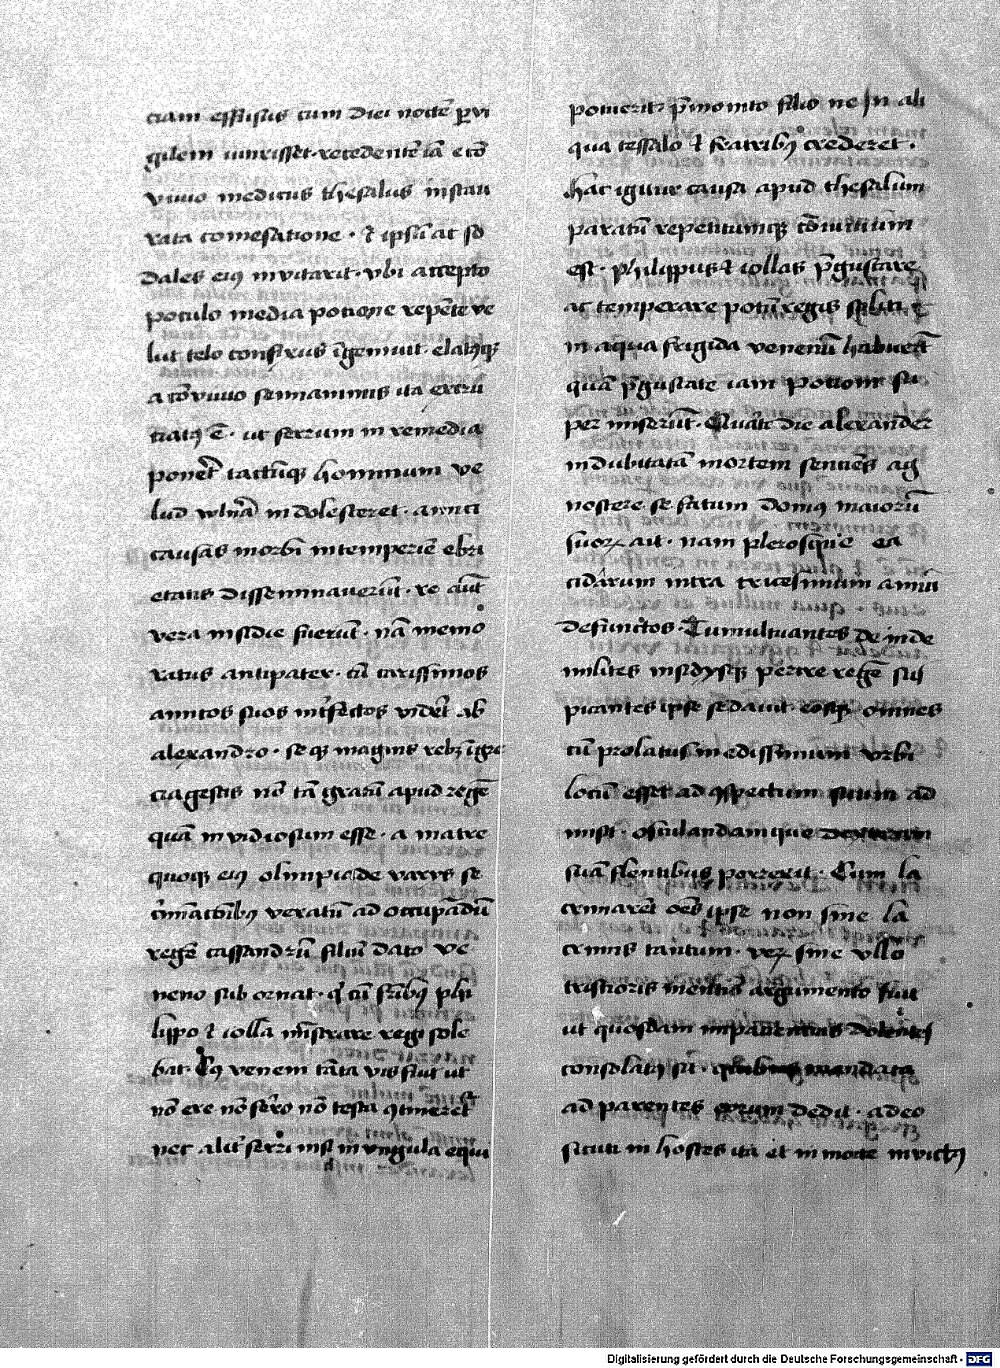 ciam effusus cum diei noctē ꝑvi
gilem iunxisset recedentē iā e cō
vivio medicus thesalus instau
rata comesatione · et ipsū ac so
dales eiꝰ invitavit · vbi accepto
poculo media potione repēte ve
lut telo confixus īgemuit · elatꝰqꝫ
a cōvivio semianimis ita excru
ciatꝰ ē · ut ferrum in remedia
poneret tactūqꝫ hominum ve
lud vlnᵃ indolesceret · amici
causas morbi intemperiē ebri
etatis disseminaverūt · re autē
vera insidie fuerūt · nā memo
ratus antipater · cū carissimos
amicos suos int̄fectos videret ab
alexandro · se qꝫ magnis rebꝫ ī gre
cia gestis nō tā gratū apud regē
quā invidiosum esse · a matre
quoqꝫ eiꝰ olimpiade varijs se
c̄minationibꝰ vexatū ad occupādū
regē cassandrū filiū dato ve
neno subornat · qͥ cū fr̄ibꝰ phi
lippo et iolla mīstrare regi sole
bat · Cuiꝰ veneni tāta vis fuit ut
nō ere nō ferro nō testa ꝯtineret᷑
nec alit̄ ferri nisi in vngula equi
potuerit p̄monito filio ne in ali
qua tessalo et fratribꝰ crederet ·
Hac igitur causa apud thesalum
paratū repetitumqꝫ cōvivium
est · philippus et iollas p̄gustare
ac temperare potū regis soliti
in aqua frigida venenū habuert̄
quā p̄gustate iam potioni su
per miserūt · Quarte die alexander
indubitatā mortem sentiēs ag
noscere se fatum domꝰ maiorū
suorꝝ ait · nam plerosqꝫ ea
cidarum intra tricesimum annū
defunctos · Tumultuantes deinde
milites insidijsqꝫ perire regē sus
picantes ipse sedavit eosqꝫ omnes
cū prolatus in edissimum vrbi
locū esset ad ꝯspectum suum ad
misit · osculandamque dexteram
suā flentibus porrexit · Cum la
crimarēt oēs ipse non sine la
crimis tantum · verꝝ sine vllo
tristioris mentis argumento fuit
ut quosdam impatientius dolentes
consolatꝰ sit · quibus mandata
ad parentes eorum dedit · adeo
sicuti in hostes ita et in morte invictꝰ
Digitalisierung gefördert durch die Deutsche Forschungsgemeinschaft - DFG